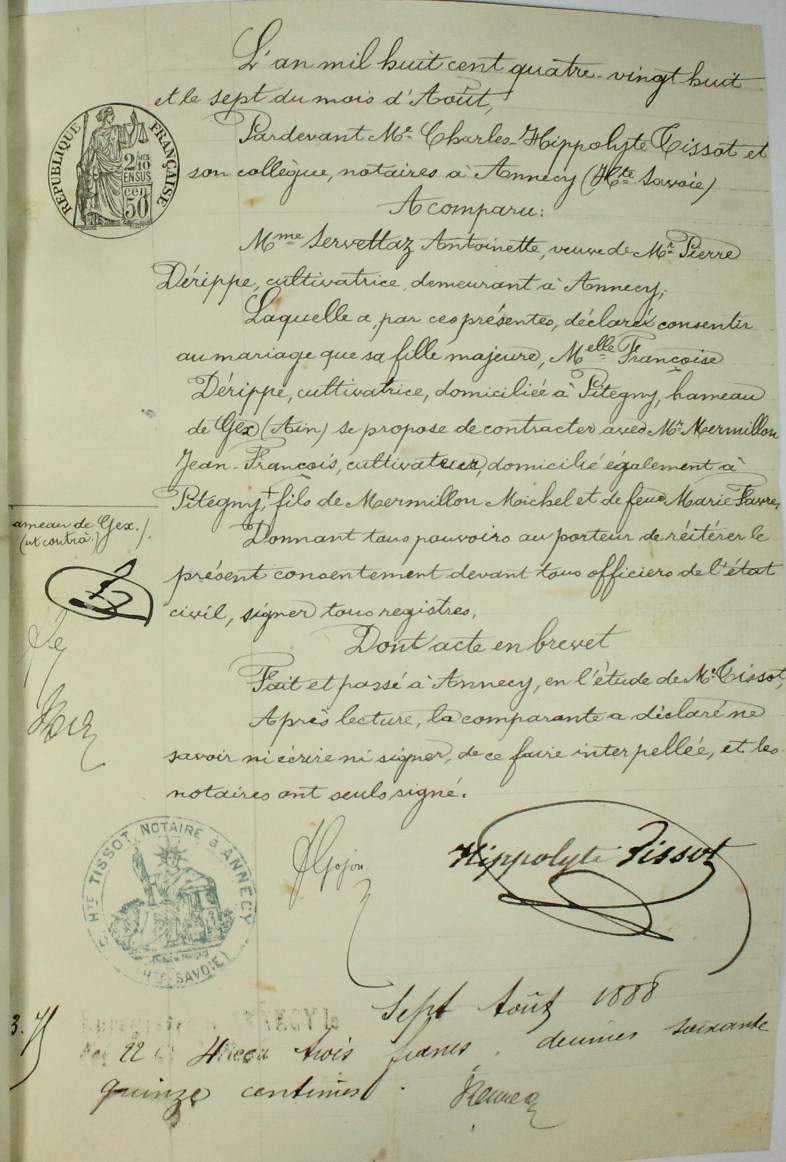 L'an mil huit cent quatre-vingt huit
et le sept du mois d'Août,
Pardevant Me Charles-Hippolyte Tissot et
son collègue, notaires à Annecy (Hte Savoie)
A comparu:
Mme Servettaz Antoinette, veuve de Mr Pierre
Dérippe, cultivatrice, demeurant à Annecy;
Laquelle a, par ces présentes, déclaré consentir
au mariage que sa fille majeure, Melle Françoise
Dérippe, cultivatrice, domiciliée à Pitegny, hameau
de Gex (Ain) se propose de contracter avec Mr Mermillon
Jean-François, cultivateur, domicilié également à
Pitégny, + fils de Mermillon Michel et de feue Marie Favre,
Donnant tous pouvoirs au porteur de réitérer le
présent consentement devant tous officiers de l'état
civil, signer tous registres.
Dont acte en brevet
Fait et passé à Annecy, en l'étude de Me Tissot,
Après lecture, la comparante a déclaré ne
savoir ni écrire ni signer, de ce faire interpellée, et les
notaires ont seuls signé.
RÉPUBLIQUE FRANÇAISE
2/10 EN SUS
50
ameau de Gex./.
Hippolyte Tissot
Hte TISSOT, NOTAIRE à ANNECY
(Hte SAVOIE)
Sept Août 1888
3.75
trois francs, décimes soixante
quinze centimes.